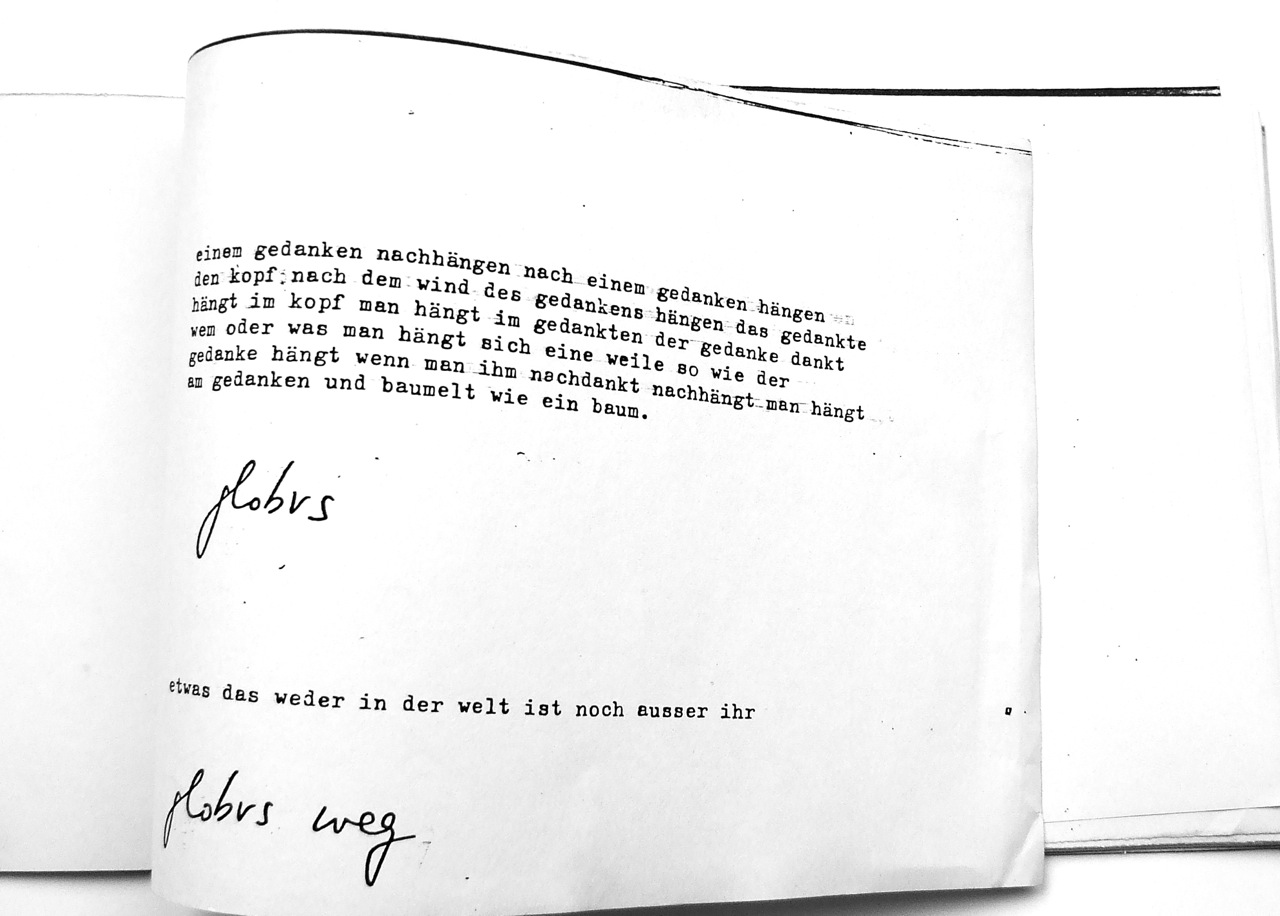 einem gedanken nachhängen nach einem gedanken hängen
den kopf nach dem wind des gedankens hängen das gedankte
hängt im kopf man hängt im gedankten der gedanke dankt
wem oder was man hängt sich eine weile so wie der
gedanke hängt wenn man ihm nachdankt nachhängt man hängt
am gedanken und baumelt wie ein baum.
globus
etwas das weder in der welt ist noch ausser ihr
globus weg